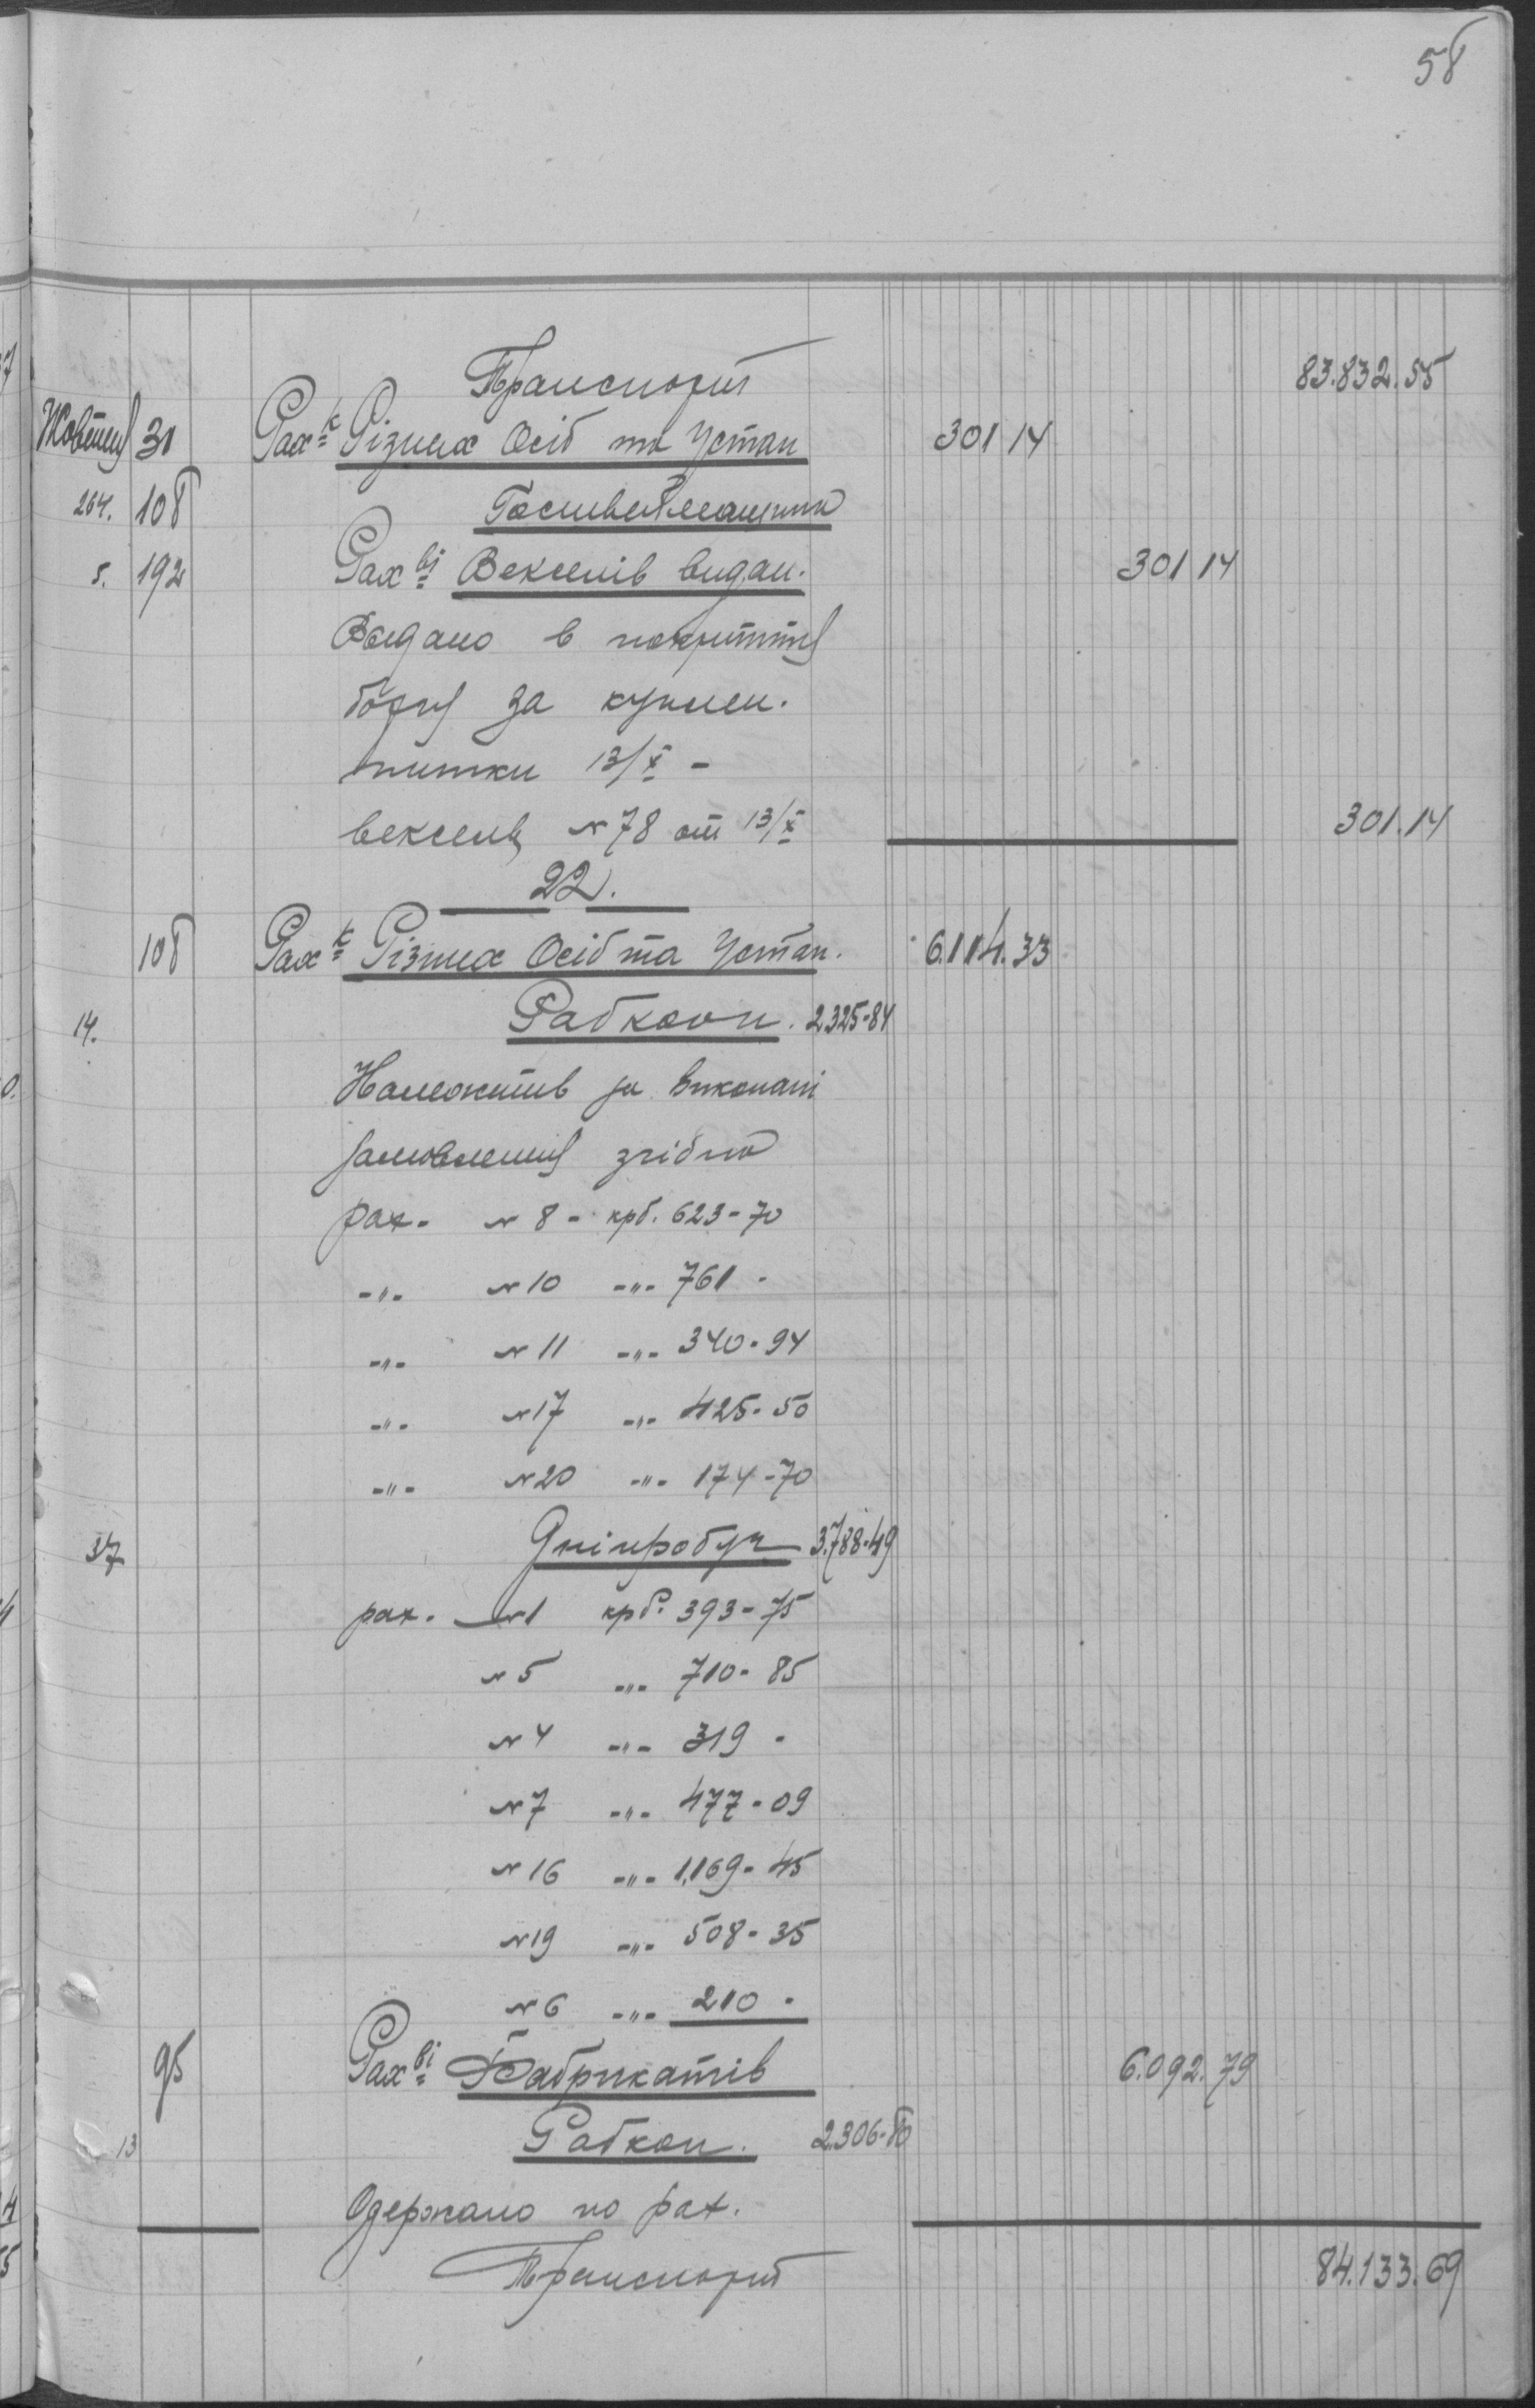 58
Транспорт 83.832.55
Жовтень 30 Рах-к Різних Осіб та Устан 301 14
264. 108
5. 192 Рах-ві Векселів видан. 301 14
Видано в покриття
боргу за куплен.
нитки 13/X -
вексель № 78 от 13/X 301.14
22.
108 Рах-к Різних Осіб та Устан. 6.114.33
14. Рабкооп. 2325-84
Належить за виконані
замовлення згідно
рах. № 8 - крб. 623-70
-"- № 10 -"- 761 -
-"- № 11 -"- 340-94
-"- № 17 -"- 425-50
-"- № 20 -"- 174-70
37 Дніпробуд 3.788-49
рах. № 1 крб. 393-75
№ 5 -"- 710-85
№ 4 -"- 319 -
№ 7 -"- 477-09
№ 16 -"- 1.169-45
№ 19 -"- 508-35
№ 6 -"- 210 -
95 Рах-ві Фабрикатів 6.092.79
13 Рабкоп. 2.306-80
Одержано по рах.
Транспорт 84.133.69